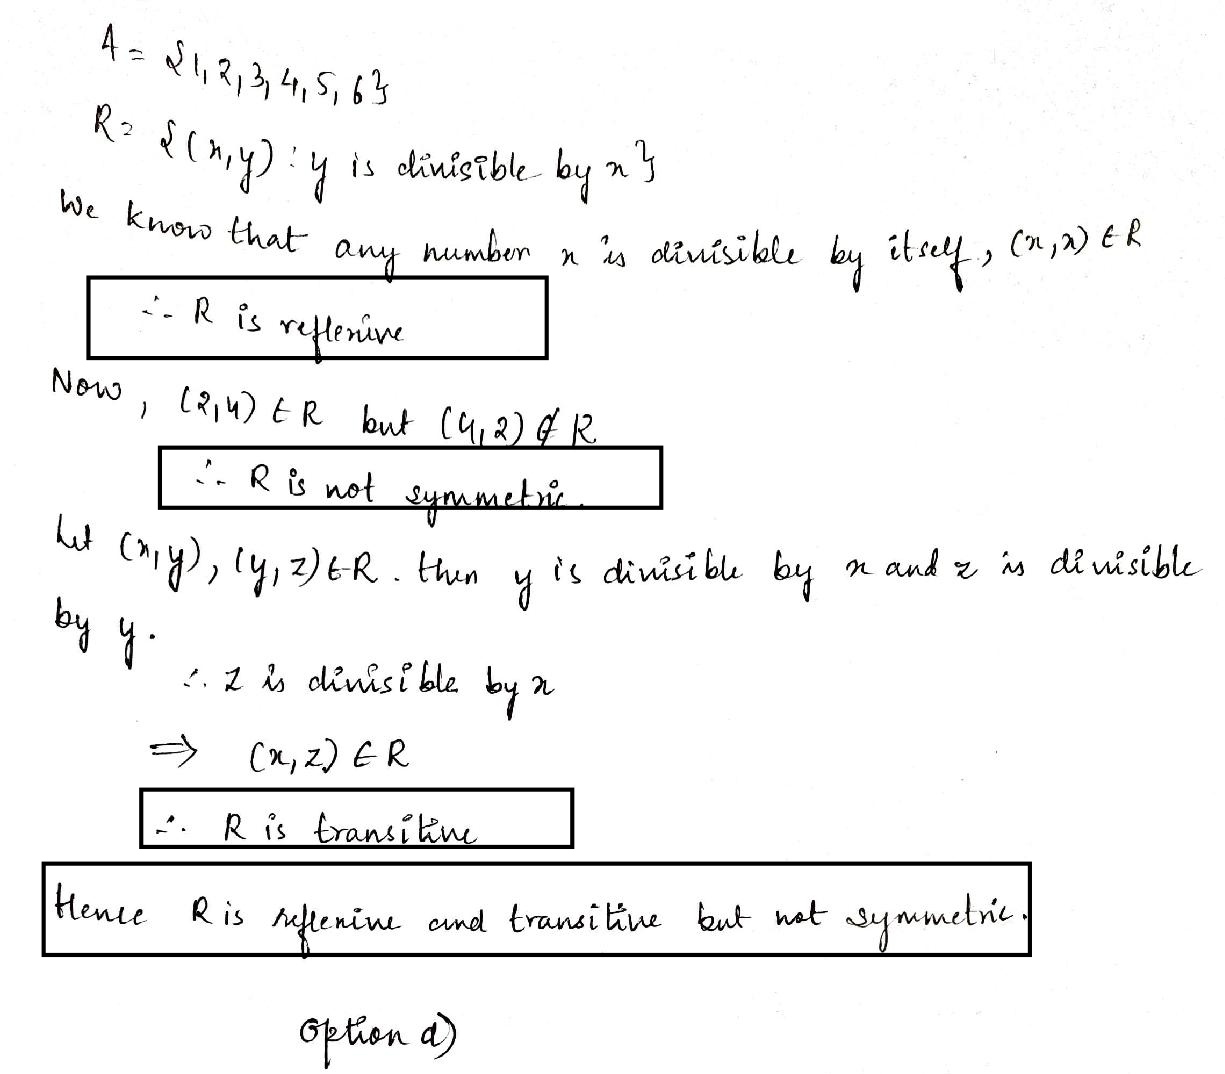 A = {1, 2, 3, 4, 5, 6}
R = {(x, y) : y is divisible by x}
We know that any number x is divisible by itself, (x, x) ∈ R
∴ R is reflexive
Now, (2, 4) ∈ R but (4, 2) ∉ R
∴ R is not symmetric.
Let (x, y), (y, z) ∈ R. then y is divisible by x and z is divisible
by y.
∴ z is divisible by x
⇒ (x, z) ∈ R
∴ R is transitive
Hence R is reflexive and transitive but not symmetric.
Option d)